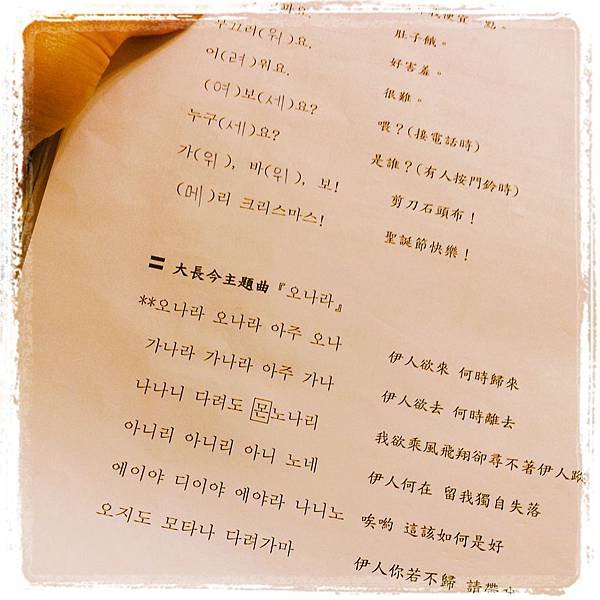 부끄러(워)요. 肚子餓。
어(려)워요. 好害羞。
(여)보(세)요? 很難。
누구(세)요? 喂？(接電話時)
가(위), 바(위), 보! 是誰？(有人按門鈴時)
(메)리 크리스마스! 剪刀石頭布！
聖誕節快樂！
二 大長今主題曲『오나라』
**오나라 오나라 아주 오나 伊人欲來 何時歸來
가나라 가나라 아주 가나 伊人欲去 何時離去
나나니 다려도 몬노나리 我欲乘風飛翔卻尋不著伊人蹤
아니리 아니리 아니 노네 伊人何在 留我獨自失落
에이야 디이야 에야라 나니노 唉喲 這該如何是好
오지도 모타나 다려가마 伊人你若不歸 請帶